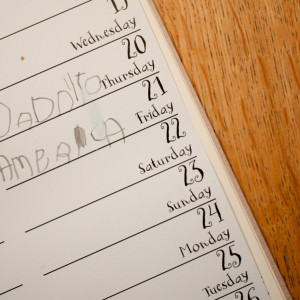 19
Wednesday
20
Thursday
21
Friday
22
Saturday
23
Sunday
24
Monday
25
Tuesday
26